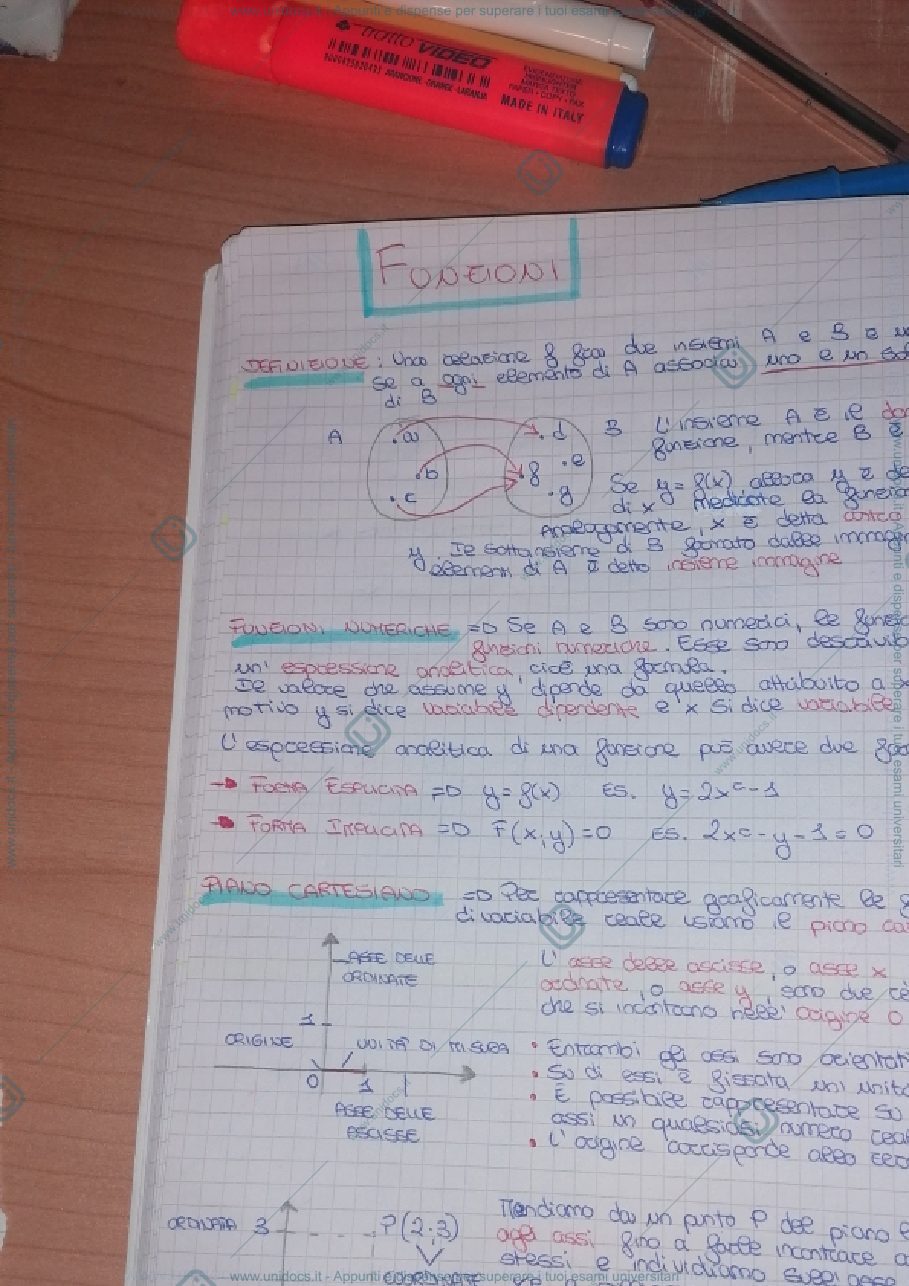 www.unidocs.it - Appunti e dispense per superare i tuoi esami universitari
tratto VIDEO
MADE IN ITALY
FUNZIONI
DEFINIZIONE: Una relazione f fra due insiemi A e B è
se a ogni elemento di A associa uno e un
di B
A
a
b
c
d
e
f
g
B
L'insieme A è il
funzione, mentre B è
Se y = f(x), allora y è
di x mediante la
Analogamente, x è detta
y. Il sottoinsieme di B formato dalle
elementi di A è detto insieme immagine
FUNZIONI NUMERICHE => Se A e B sono numerici, le
funzioni numeriche. Esse sono
un'espressione analitica, cioè una formula.
Il valore che assume y dipende da quello attribuito a
motivo y si dice variabile dipendente e x si dice variabile
L'espressione analitica di una funzione può avere due
→ FORMA ESPLICITA => y = f(x) ES. y = 2x² - 1
→ FORMA IMPLICITA => F(x;y) = 0 ES. 2x² - y - 1 = 0
PIANO CARTESIANO => Per rappresentare graficamente le
di variabile reale usiamo il piano
ASSE DELLE
ORDINATE
1
ORIGINE
UNITÀ DI MISURA
0
1
ASSE DELLE
ASCISSE
L'asse delle ascisse, o asse x
ordinate, o asse y sono due
che si incontrano nell'origine O
• Entrambi gli assi sono
• Su di essi è fissata un'
• È possibile rappresentare su
assi un qualsiasi numero
• L'origine corrisponde allo
ORDINATA 3
P(2;3)
Mandiamo da un punto P del piano
agli assi fino a farle incontrare
stessi e individuiamo
www.unidocs.it - Appunti e dispense per superare i tuoi esami universitari